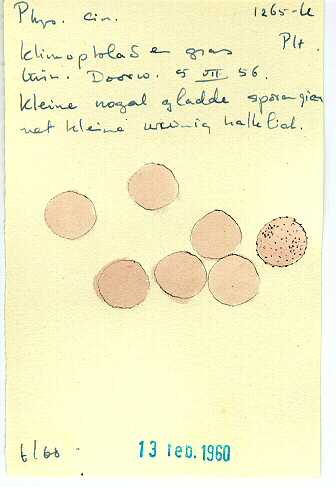 Phys. cin. 1265-k
Klimopblad en gras Plt.
tuin. Doorw. 5 VII 56.
kleine nogal gladde sporangien
met kleine weinig kalk lich.
t/60
13 feb. 1960